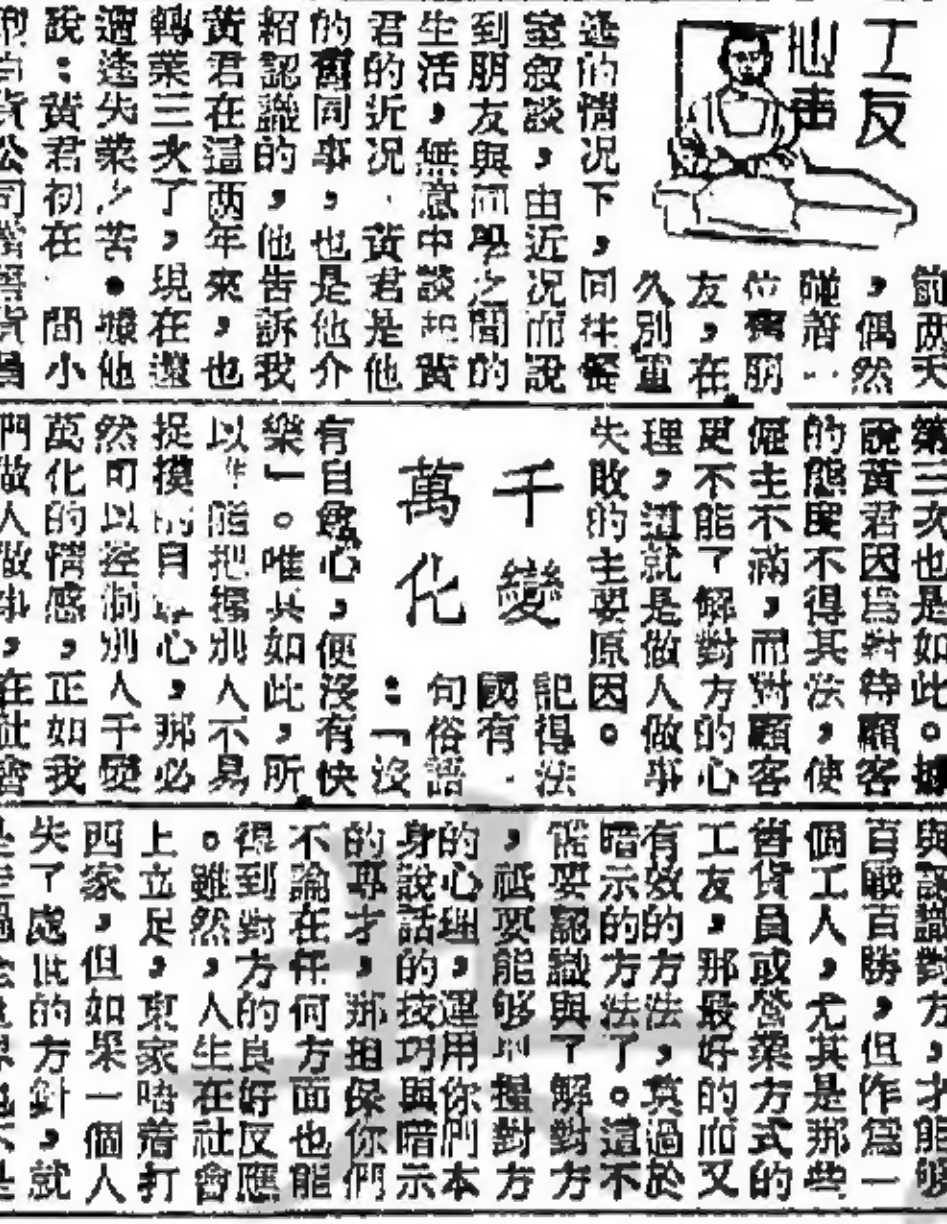 工友
心声
前两天
，偶然
碰着一
位舊朋
友，在
久別重
逢的情况下，同往餐
室敘談，由近况而說
到朋友與同學之間的
生活，無意中談起黃
君的近况，黃君是他
的舊同事，也是他介
紹認識的，他告訴我
黃君在這两年來，也
轉業三次了，現在還
遭逢失業之苦。據他
說：黃君初在一間小
公司
千變
萬化
第三次也是如此。據
說黃君因爲對待顧客
的態度不得其法，使
僱主不滿，而對顧客
更不能了解對方的心
理，這就是做人做事
失敗的主要原因。
記得法
國有一
句俗語
：「沒
有自尊心，便沒有快
樂」。唯其如此，所
以能把握別人不易
捉摸的自尊心，那必
然可以控制別人千變
萬化的情感，正如我
們做人做事，在社會
與認識對方，才能够
百戰百勝，但作爲一
個工人，尤其是那些
售貨員或營業方式的
工友，那最好的而又
有效的方法，莫過於
暗示的方法了。這不
僅要認識與了解對方
，祇要能够把握對方
的心理，運用你們本
身說話的技巧與暗示
的專才，那担保你們
不論在任何方面也能
得到對方的良好反應
。雖然，人生在社會
上立足，東家唔着打
西家，但如果一個人
失了處世的方針，就